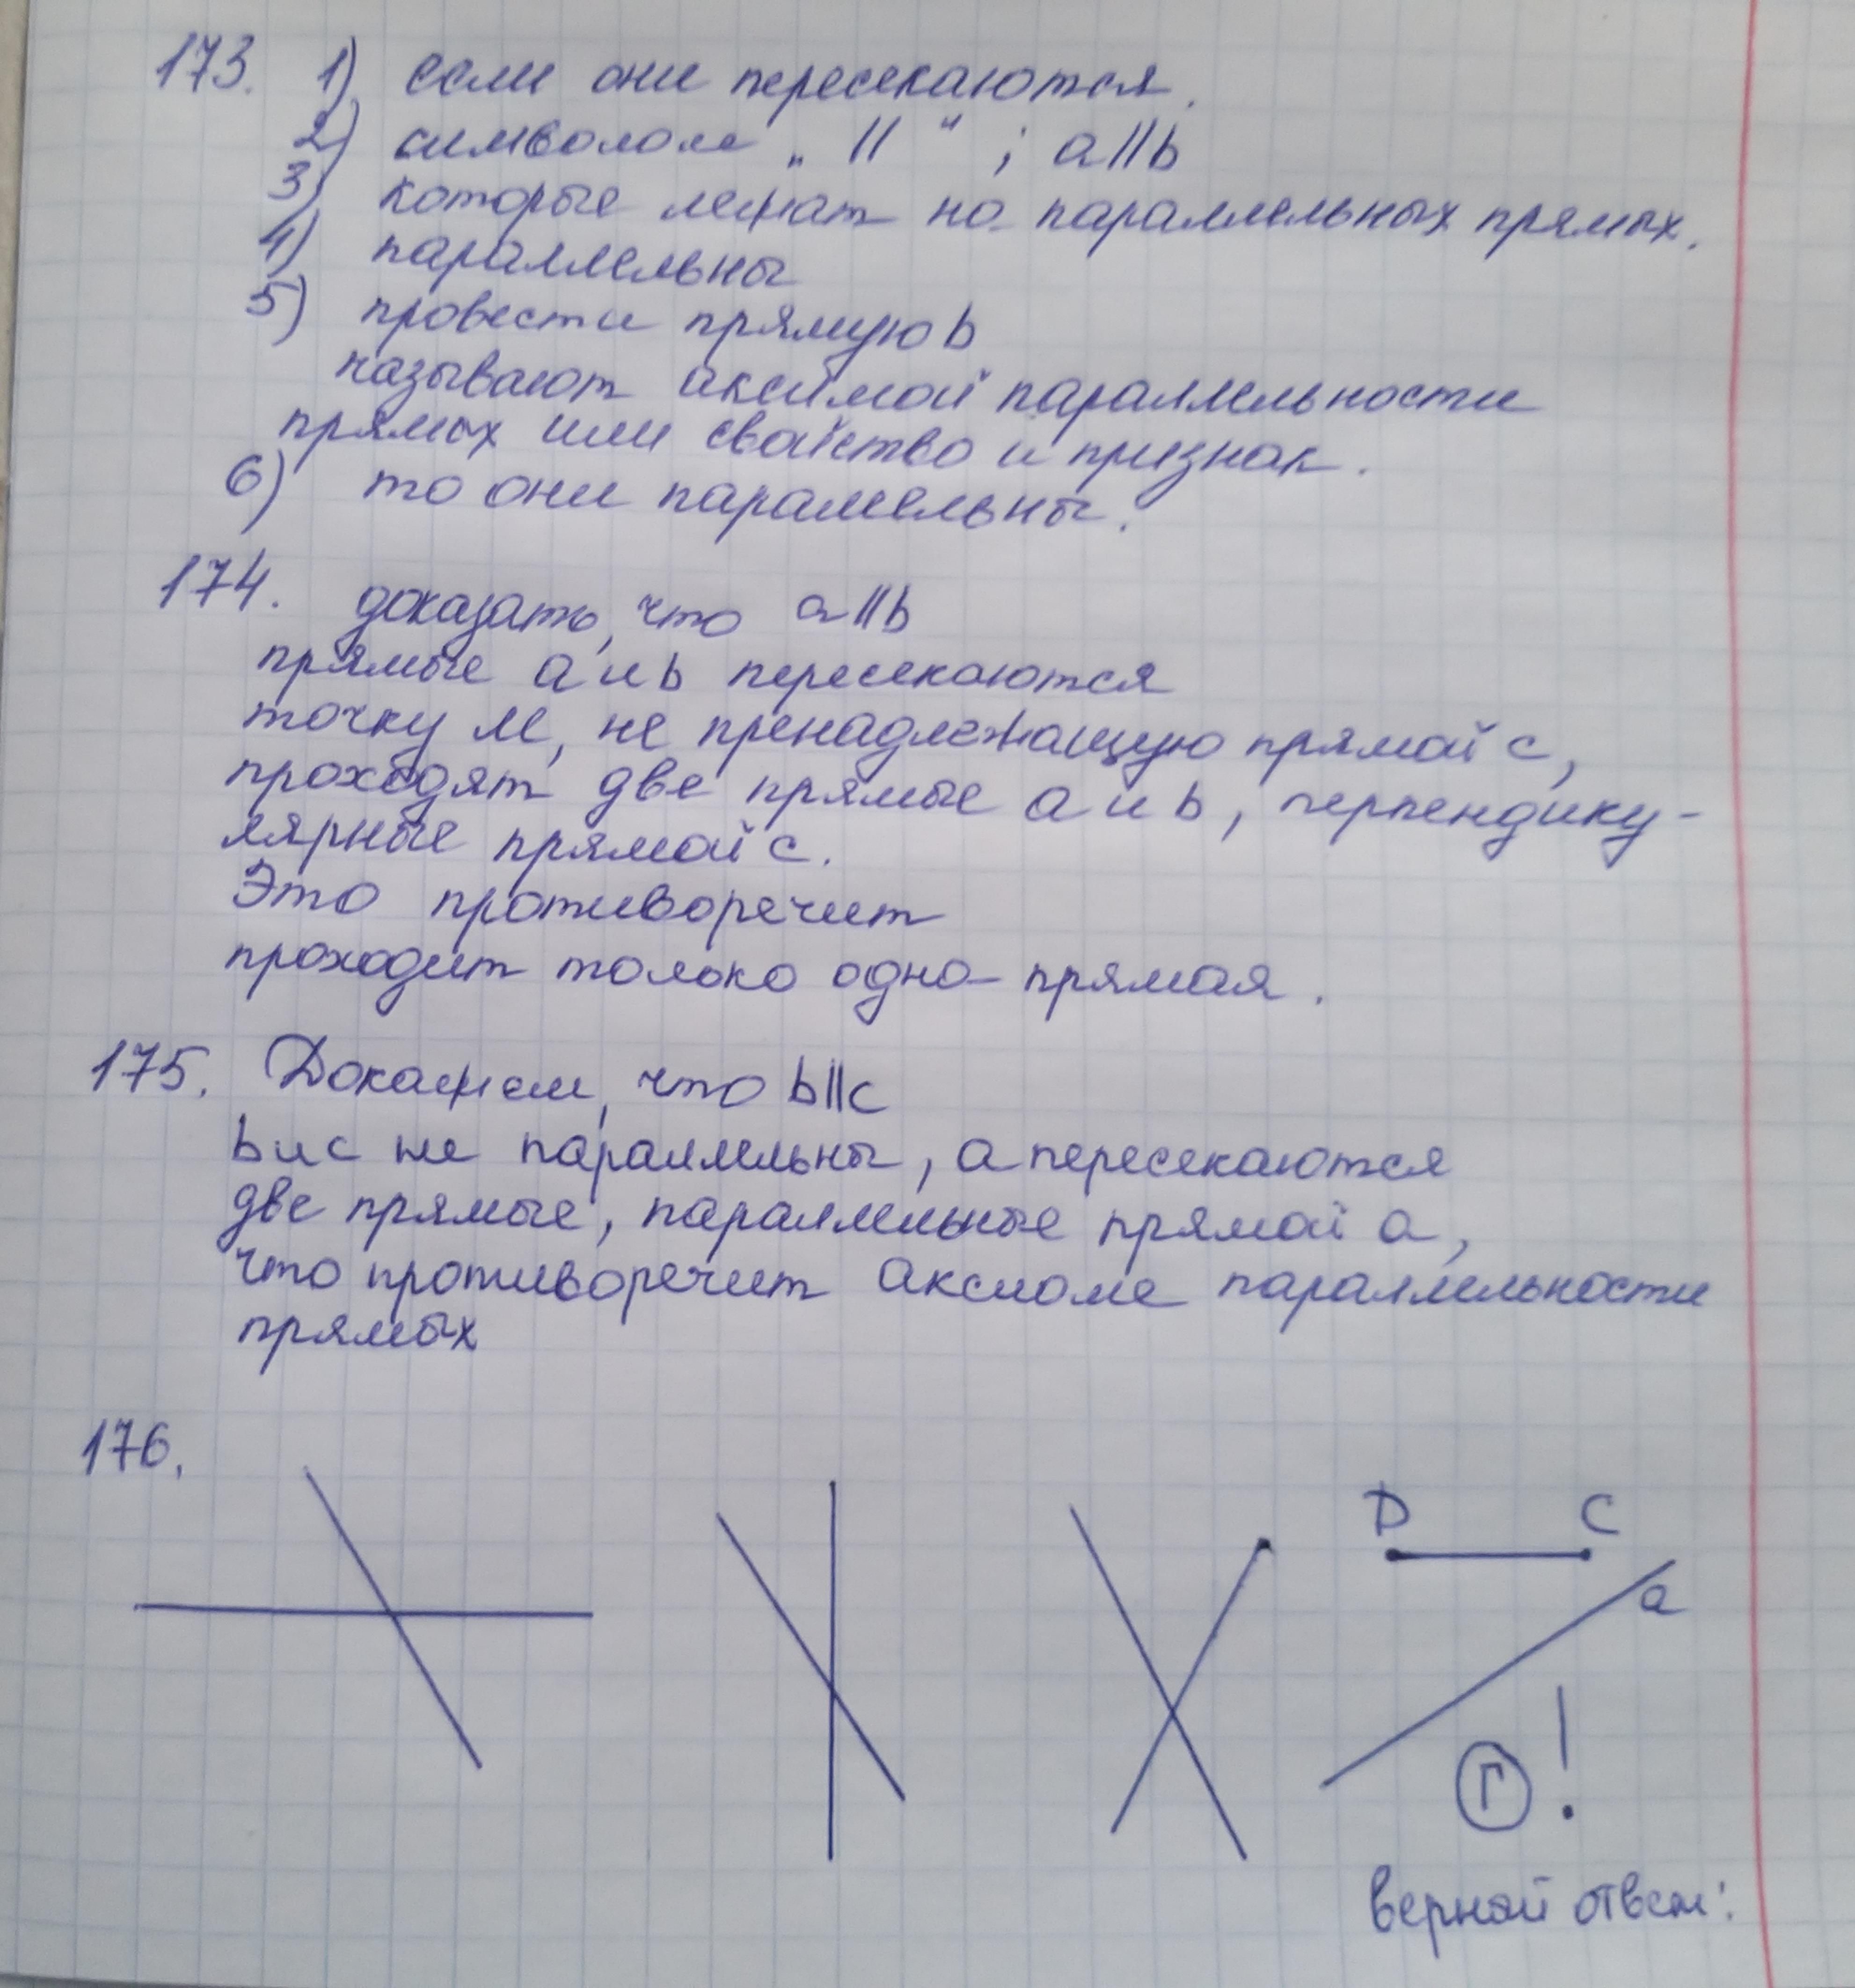 173. 1) если они пересекаются.
2) символом „ || “ ; a||b
3) которые лежат на параллельных прямых.
4) параллельны
5) провести прямую b
называют аксимой параллельности
прямых или свойство и признак.
6) то они параллельны.
174. доказать, что a||b
прямые a и b пересекаются
точку M, не пренадлежащую прямой c,
проходят две прямые a и b, перпендику-
лярные прямой c.
Это противоречит
проходит только одна прямая.
175. Докажем, что b||c
b и c не параллельны, а пересекаются
две прямые, параллельные прямой a,
что противоречит аксиоме параллельности
прямых
176.
D C
a
Г !
верный ответ: